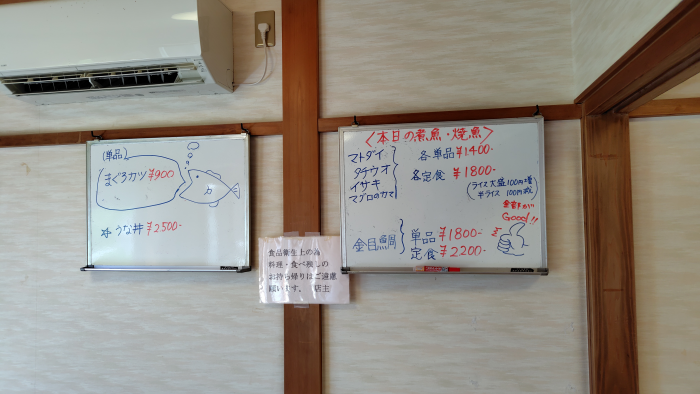 (単品)
まぐろカツ ¥900
うな丼 ¥2500-
食品衛生上の為
料理・食べ残しの
お持ち帰りはご遠慮
願います。 店主
<本日の煮魚・焼魚>
マトダイ
タチウオ
イサキ
マグロのカマ
各単品 ¥1400-
各定食 ¥1800-
(ライス大盛100円増
半ライス 100円減)
Good!!
金目鯛
単品 ¥1800-
定食 ¥2200-